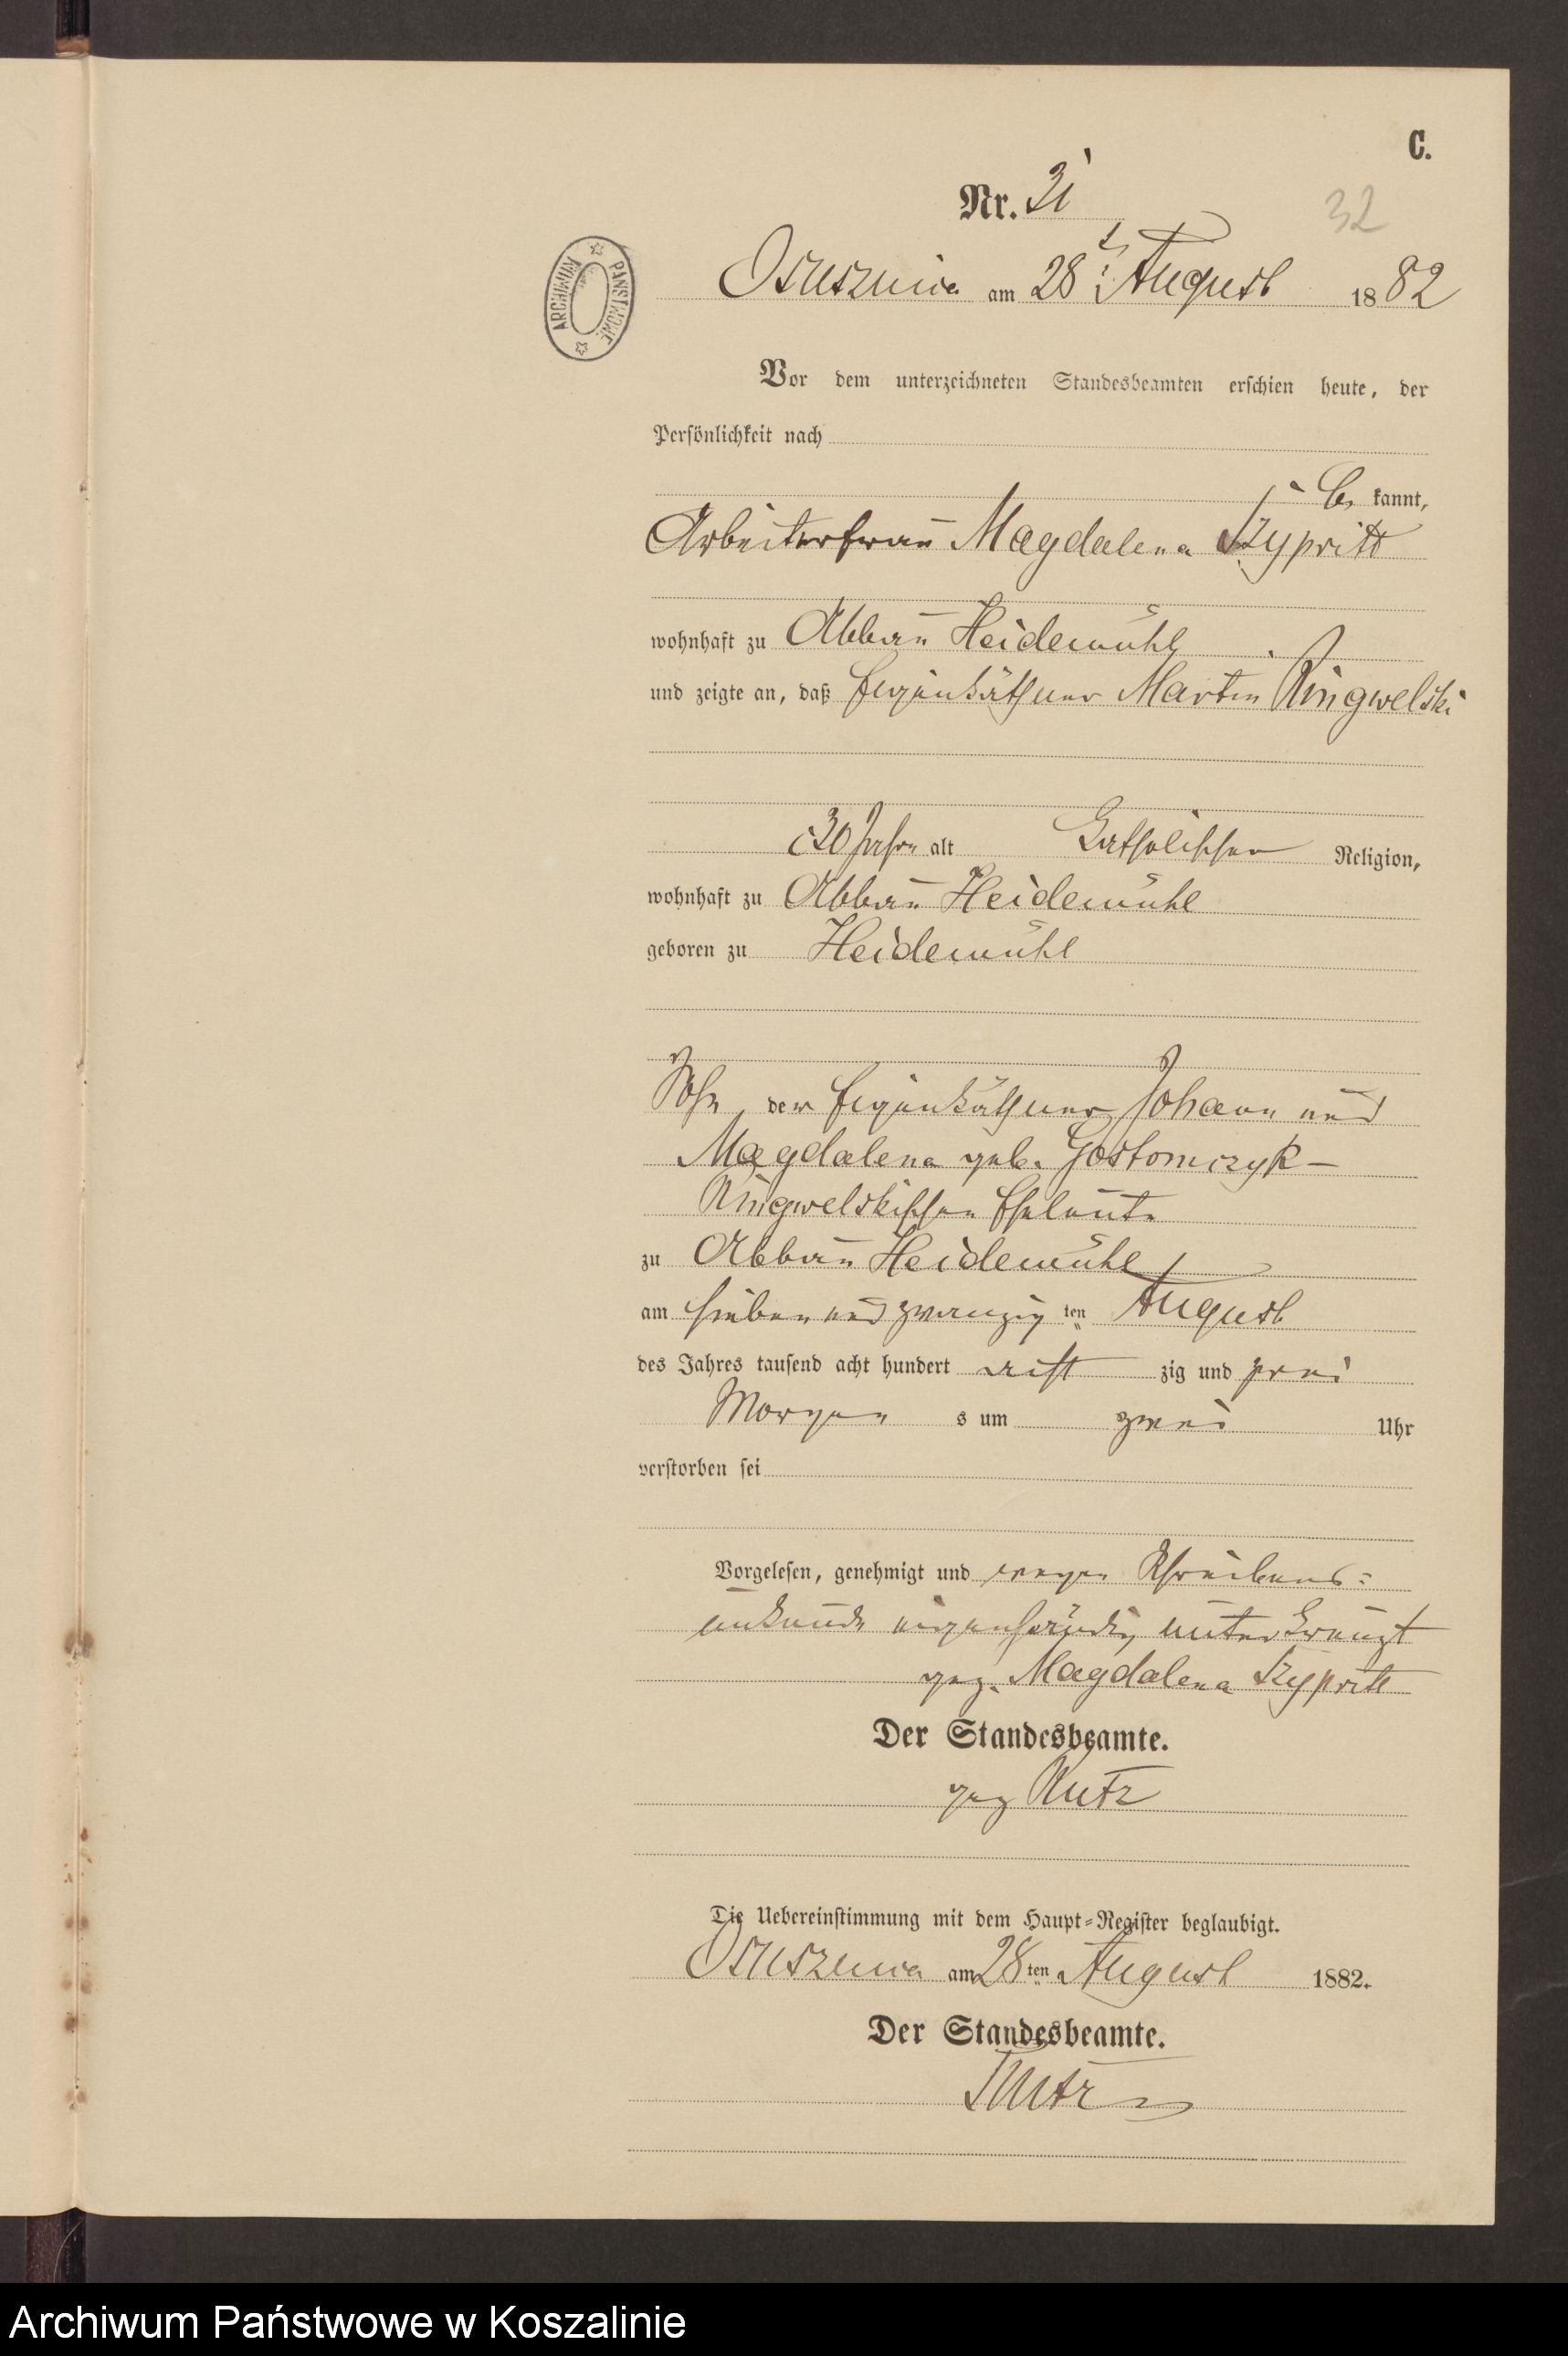 C.
Nr. 31
32
ARCHIWUM PAŃSTWOWE
Osusznica am 28 ten August 1882
Vor dem unterzeichneten Standesbeamten erschien heute, der
Persönlichkeit nach
be kannt,
Arbeiterfrau Magdalena Szypritt
wohnhaft zu Abbau Heidemühl
und zeigte an, daß Eigenkäthner Martin Ringwelski
30 Jahre alt Katholischer Religion,
wohnhaft zu Abbau Heidemühl
geboren zu Heidemühl
Sohn der Eigenkäthner Johann und
Magdalena geb. Gostomczyk-
Ringwelskischen Eheleute
zu Abbau Heidemühl
am sieben und zwanzig ten August
des Jahres tausend acht hundert acht zig und zwei
Morgen s um zwei Uhr
verstorben sei
Vorgelesen, genehmigt und wegen Schreibens-
unkunde eigenhändig unterkreuzt
gez. Magdalena Szypritt
Der Standesbeamte.
gez Kutz
Die Uebereinstimmung mit dem Haupt-Register beglaubigt.
Osusznica am 28 ten August 1882.
Der Standesbeamte.
Kutz
Archiwum Państwowe w Koszalinie